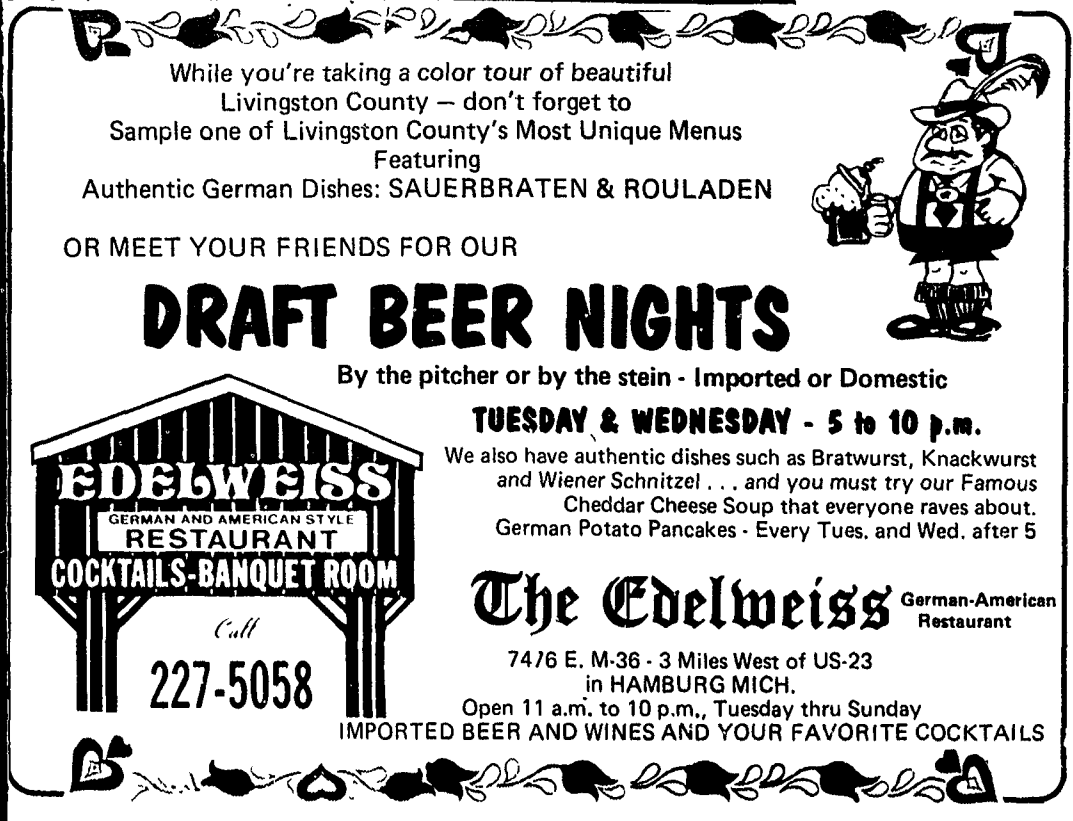 While you're taking a color tour of beautiful
Livingston County — don't forget to
Sample one of Livingston County's Most Unique Menus
Featuring
Authentic German Dishes: SAUERBRATEN & ROULADEN
OR MEET YOUR FRIENDS FOR OUR
DRAFT BEER NIGHTS
By the pitcher or by the stein - Imported or Domestic
TUESDAY & WEDNESDAY - 5 to 10 p.m.
We also have authentic dishes such as Bratwurst, Knackwurst
and Wiener Schnitzel . . . and you must try our Famous
Cheddar Cheese Soup that everyone raves about.
German Potato Pancakes - Every Tues. and Wed. after 5
EDELWEISS
GERMAN AND AMERICAN STYLE
RESTAURANT
COCKTAILS-BANQUET ROOM
Call
227-5058
The Edelweiss German-American
Restaurant
7476 E. M-36 - 3 Miles West of US-23
in HAMBURG MICH.
Open 11 a.m. to 10 p.m., Tuesday thru Sunday
IMPORTED BEER AND WINES AND YOUR FAVORITE COCKTAILS